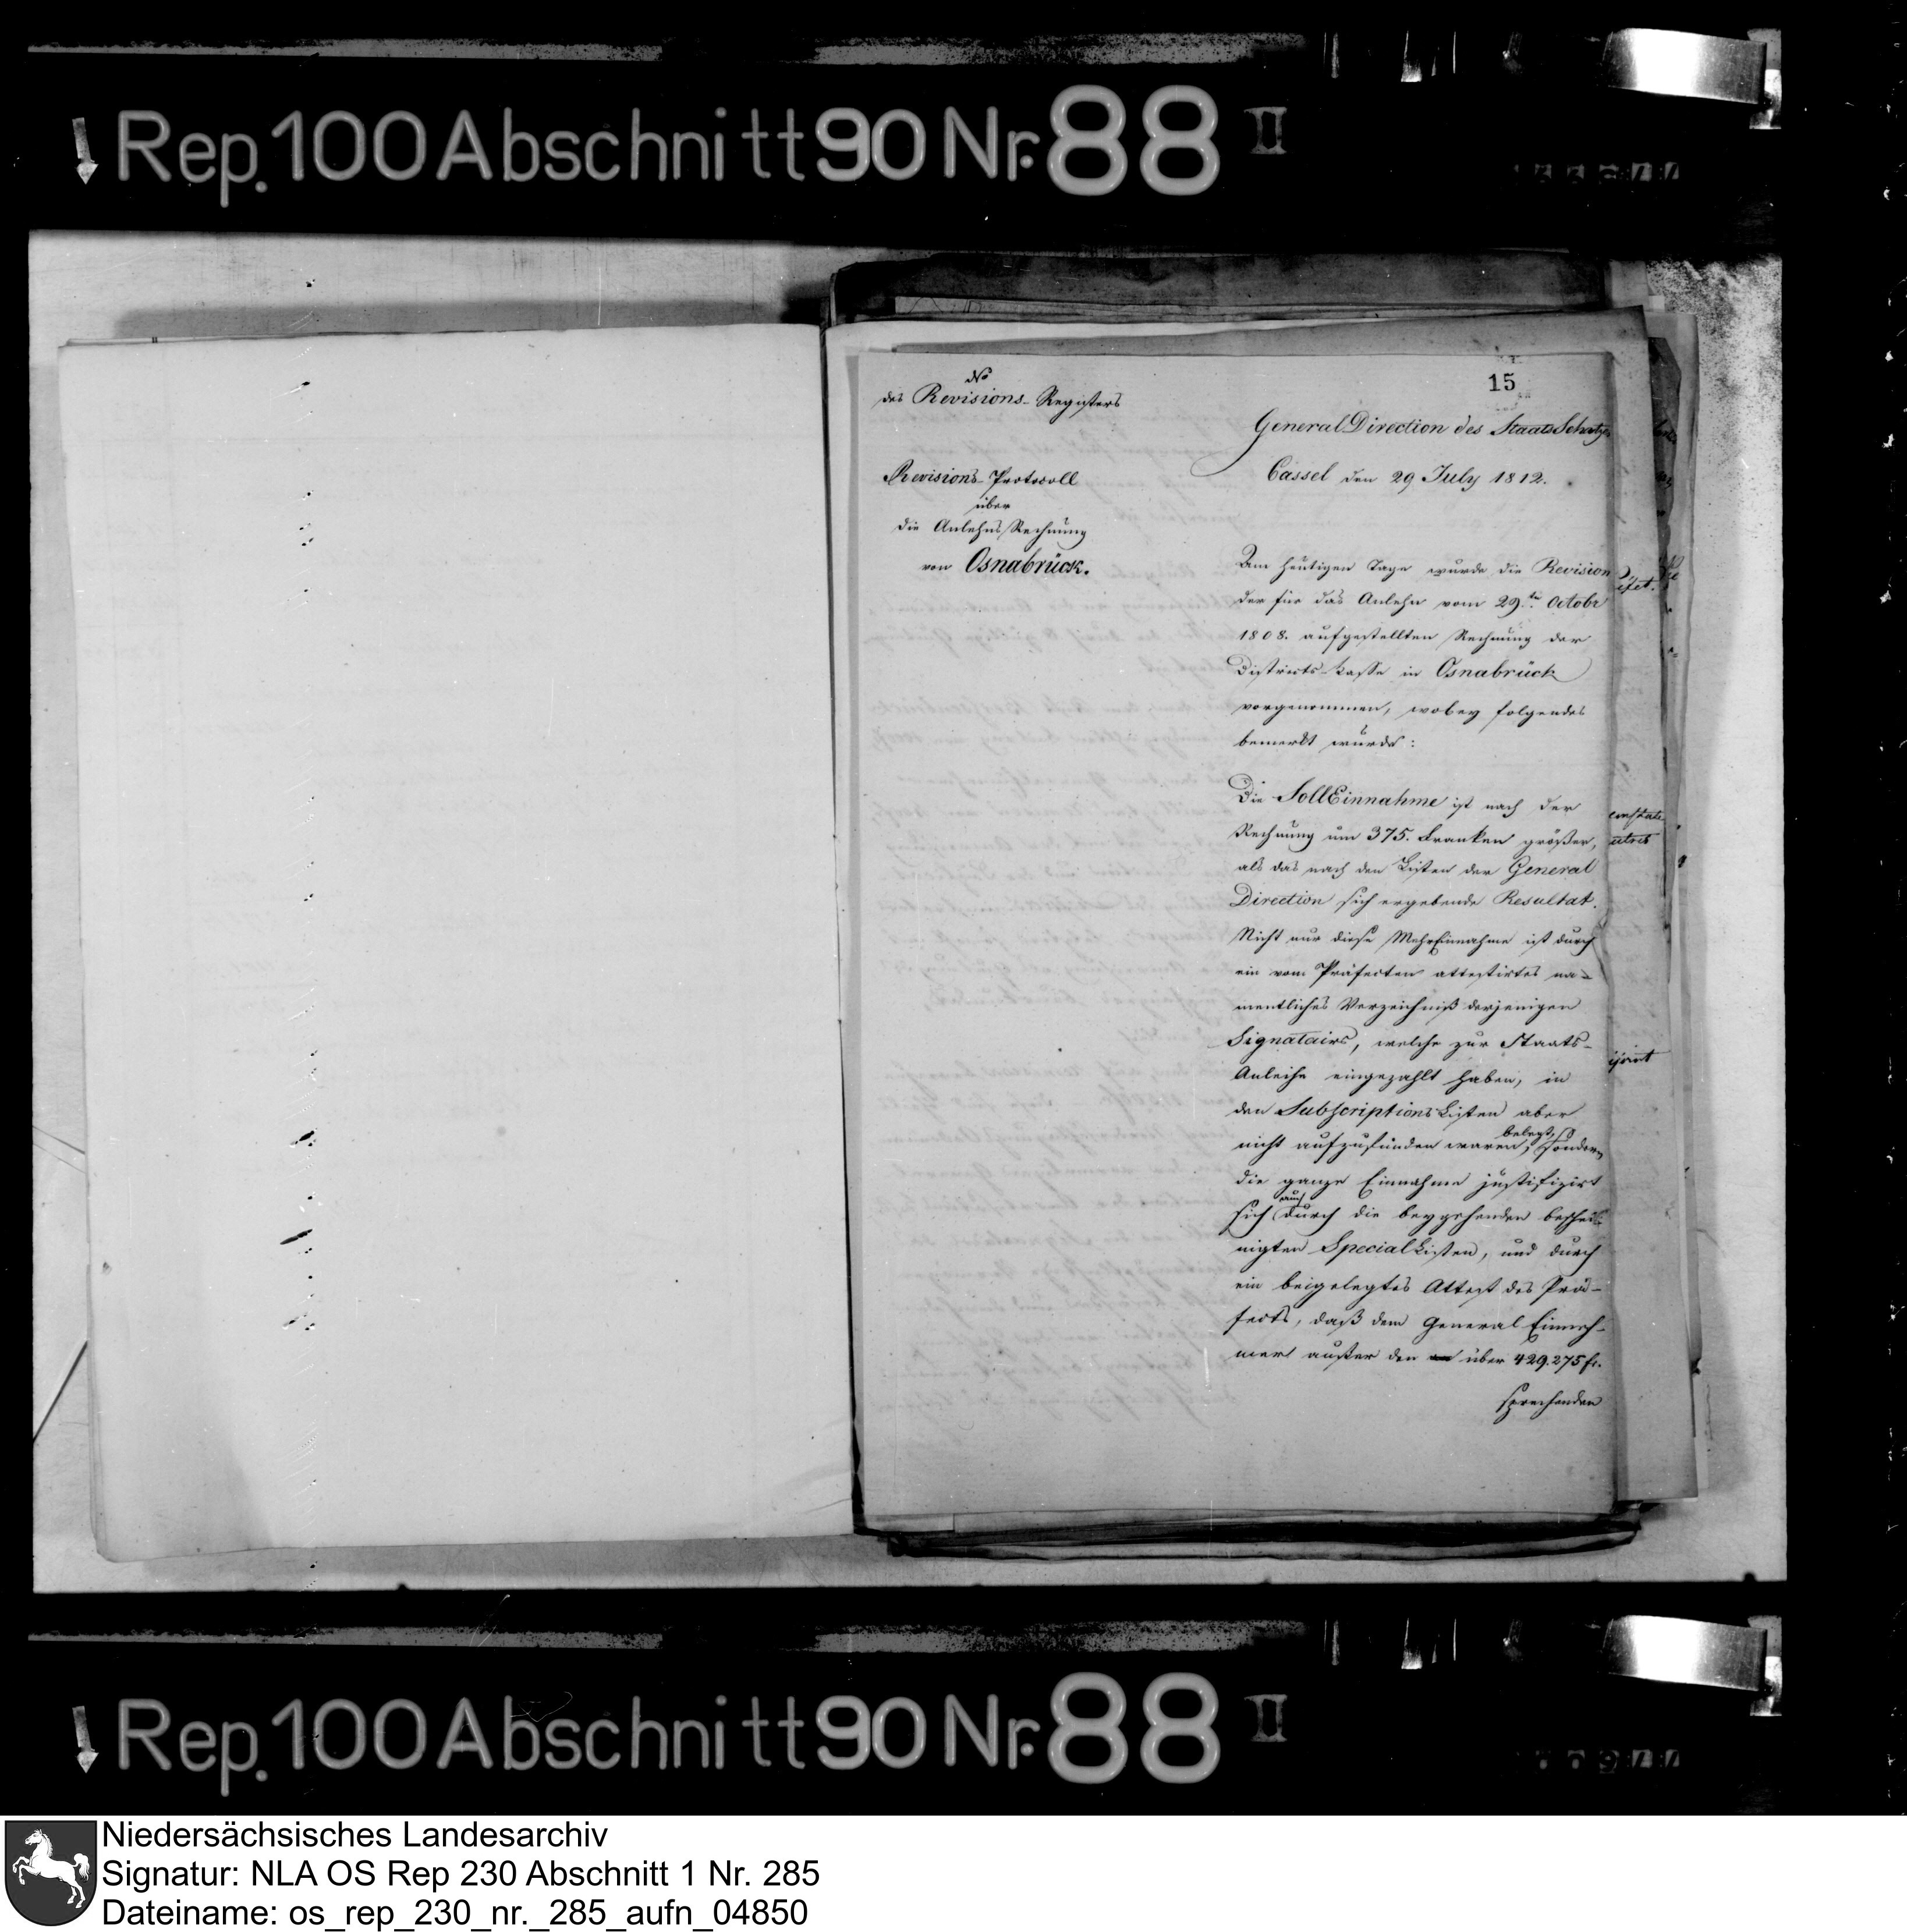 Rep. 100 Abschnitt 90 Nr. 88 II
No
des Revisions-Registers
15
General Direction des Staats Schatzes
Cassel den 29 July 1812.
Revisions-Protocoll
über
die Anlehns Rechnung
von Osnabrück.
Am heutigen Tage wurde die Revision
der für das Anlehn vom 29.ten Octobr
1808. aufgestellten Rechnung der
Districts-Casse in Osnabrück
vorgenommen, wobey folgendes
bemerkt wurde:
Die Soll Einnahme ist nach der
Rechnung um 375. Franken größer,
als das nach den Listen der General
Direction sich ergebende Resultat.
Nicht nur diese Mehr Einnahme ist durch
ein vom Präfecten attestirtes na-
mentliches Verzeichniß derjenigen
Signatairs, welche zur Staats-
Anleihe eingezahlt haben, in
den Subscriptions Listen aber
nicht aufzufinden waren, belegt, sondern
die ganze Einnahme justifizirt
sich auch durch die beygehenden beschei-
nigten Special Listen, und durch
ein beigelegtes Attest des Prä-
fects, daß dem General Einneh-
mer außer den über 429.275 fr.
sprechenden
Rep. 100 Abschnitt 90 Nr. 88 II
Niedersächsisches Landesarchiv
Signatur: NLA OS Rep 230 Abschnitt 1 Nr. 285
Dateiname: os_rep_230_nr._285_aufn_04850